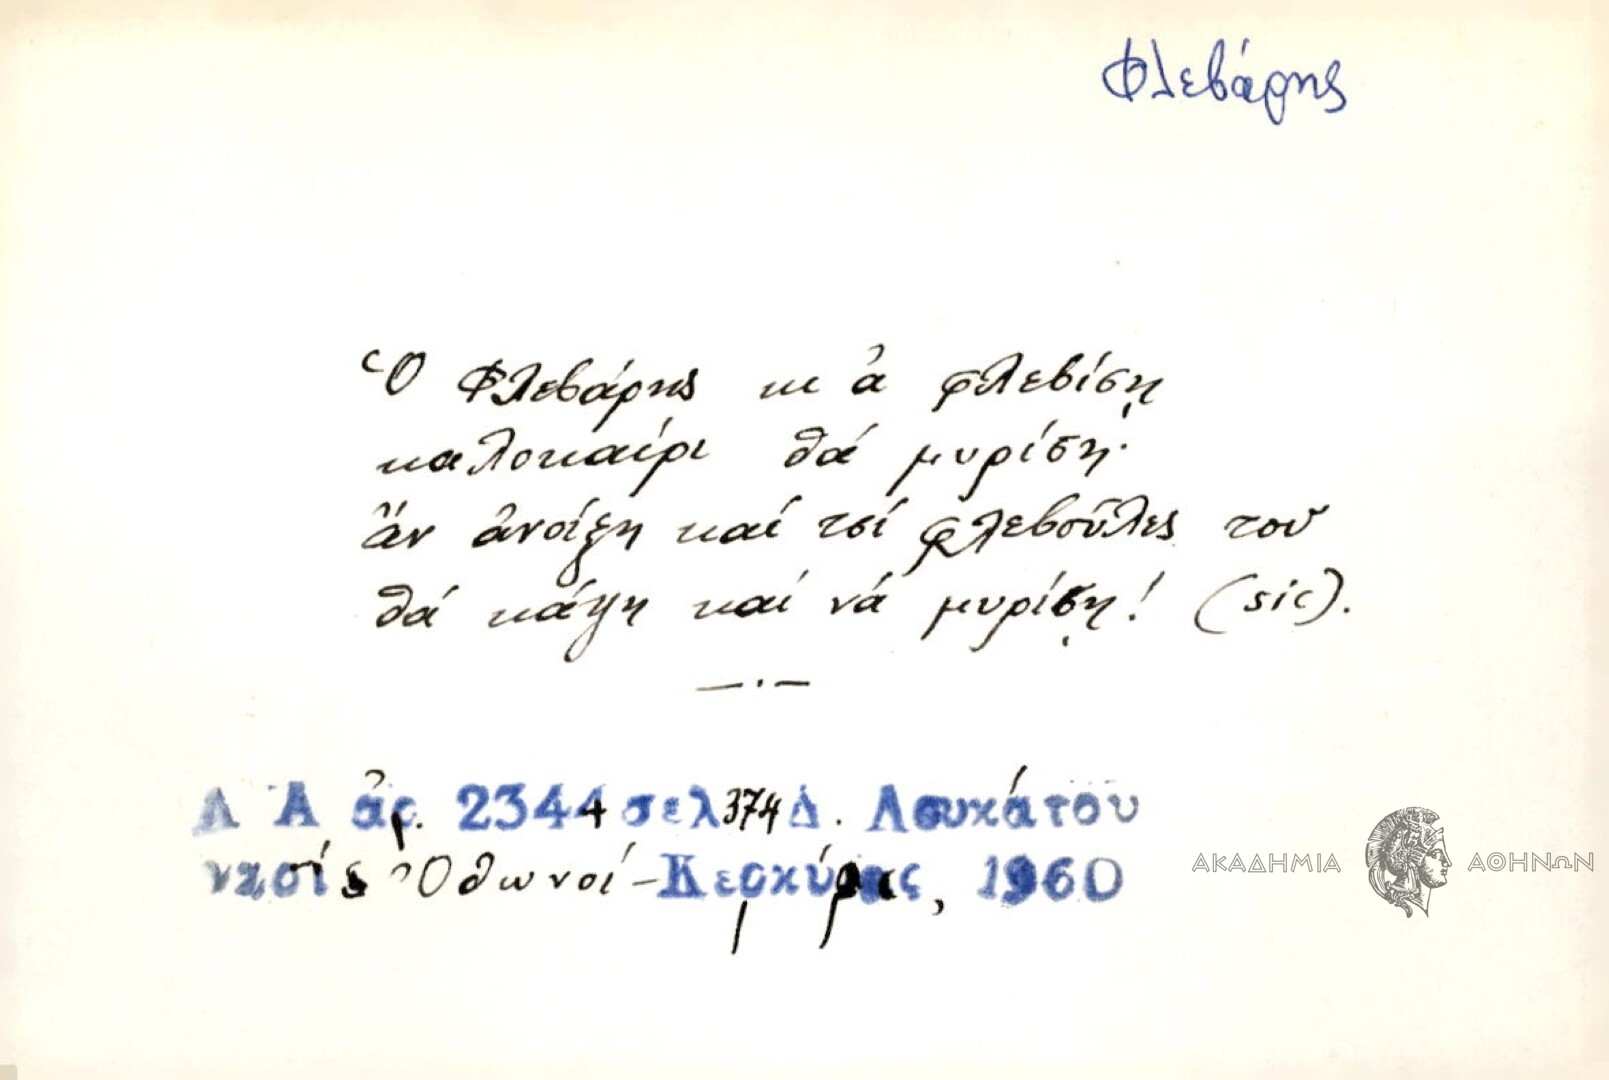 Φλεβάρης
Ὁ Φλεβάρης κι ἀ φλεβίσῃ
καλοκαίρι θά μυρίσῃ·
ἄν ἀνοίξη καί τσί φλεβοῦλες του
θά κάψη καί νά μυρίσῃ! (sic).
Λ Α ἀρ. 2344 σελ 374 Δ. Λουκάτου
νησίς Ὀθωνοί - Κερκύρας, 1960
ΑΚΑΔΗΜΙΑ ΑΘΗΝΩΝ